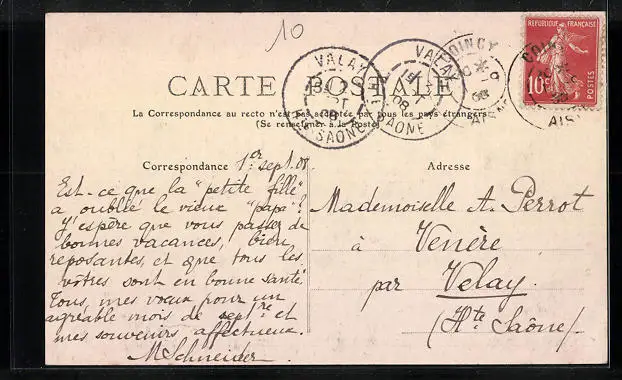 10
CARTE POSTALE
La Correspondance au recto n'est pas acceptée par tous les pays étrangers
(Se renseigner à la Poste)
VALAY
Hte SAONE
VALAY
SAONE
COINCY
AISNE
COINCY
AISNE
REPUBLIQUE FRANÇAISE
10c
POSTES
Correspondance 1er sept. 08.
Est-ce que la "petite fille"
a oublié le vieux "papa"?
J'espère que vous passez de
bonnes vacances, bien
reposantes, et que tous les
vôtres sont en bonne santé
Tous mes vœux pour un
agréable mois de septbre et
mes souvenirs affectueux.
MSchneider.
Adresse
Mademoiselle A. Perrot
à Venère
par Velay.
(Hte Saône)